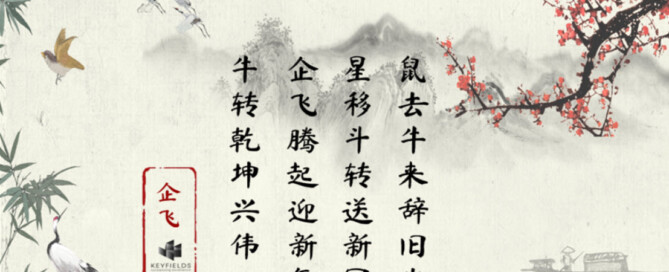 鼠去牛来辞旧
星移斗转送新
企飞腾起迎新
牛转乾坤兴伟
企飞
KEYFIELDS